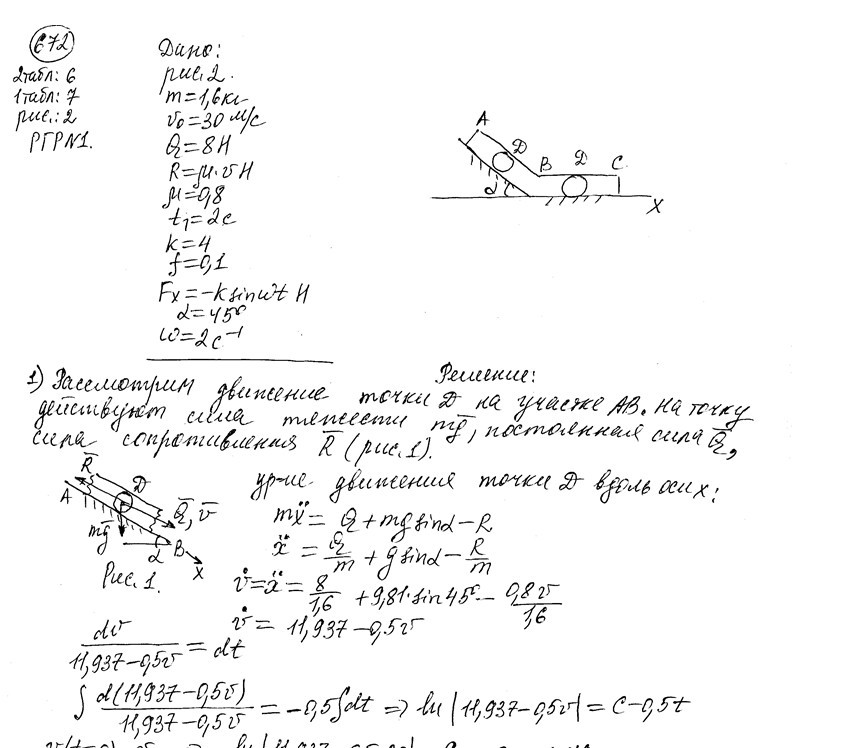 672
2табл: 6
1табл: 7
рис.: 2
РГР№1.
Дано:
рис. 2.
m=1,6кг
v₀=30 м/с
Q=8Н
R=μ·v Н
μ=0,8
t₁=2с
k=4
f=0,1
Fx=-k sinωt Н
α=45°
ω=2с⁻¹
A
D
B
D
C
α
X
Решение:
1) Рассмотрим движение точки D на участке AB. На точку
действуют сила тяжести mg̅, постоянная сила Q̅,
сила сопротивления R̅ (рис. 1).
R̅
A
D
Q̅, v̅
mg̅
α
B
X
Рис. 1.
ур-ие движения точки D вдоль оси x:
mẍ = Q + mg sinα - R
ẍ = Q/m + g sinα - R/m
v̇=ẍ = 8/1,6 + 9,81·sin45° - 0,8v/1,6
v̇ = 11,937-0,5v
dv/(11,937-0,5v) = dt
∫ d(11,937-0,5v)/(11,937-0,5v) = -0,5∫dt => ln|11,937-0,5v| = C-0,5t